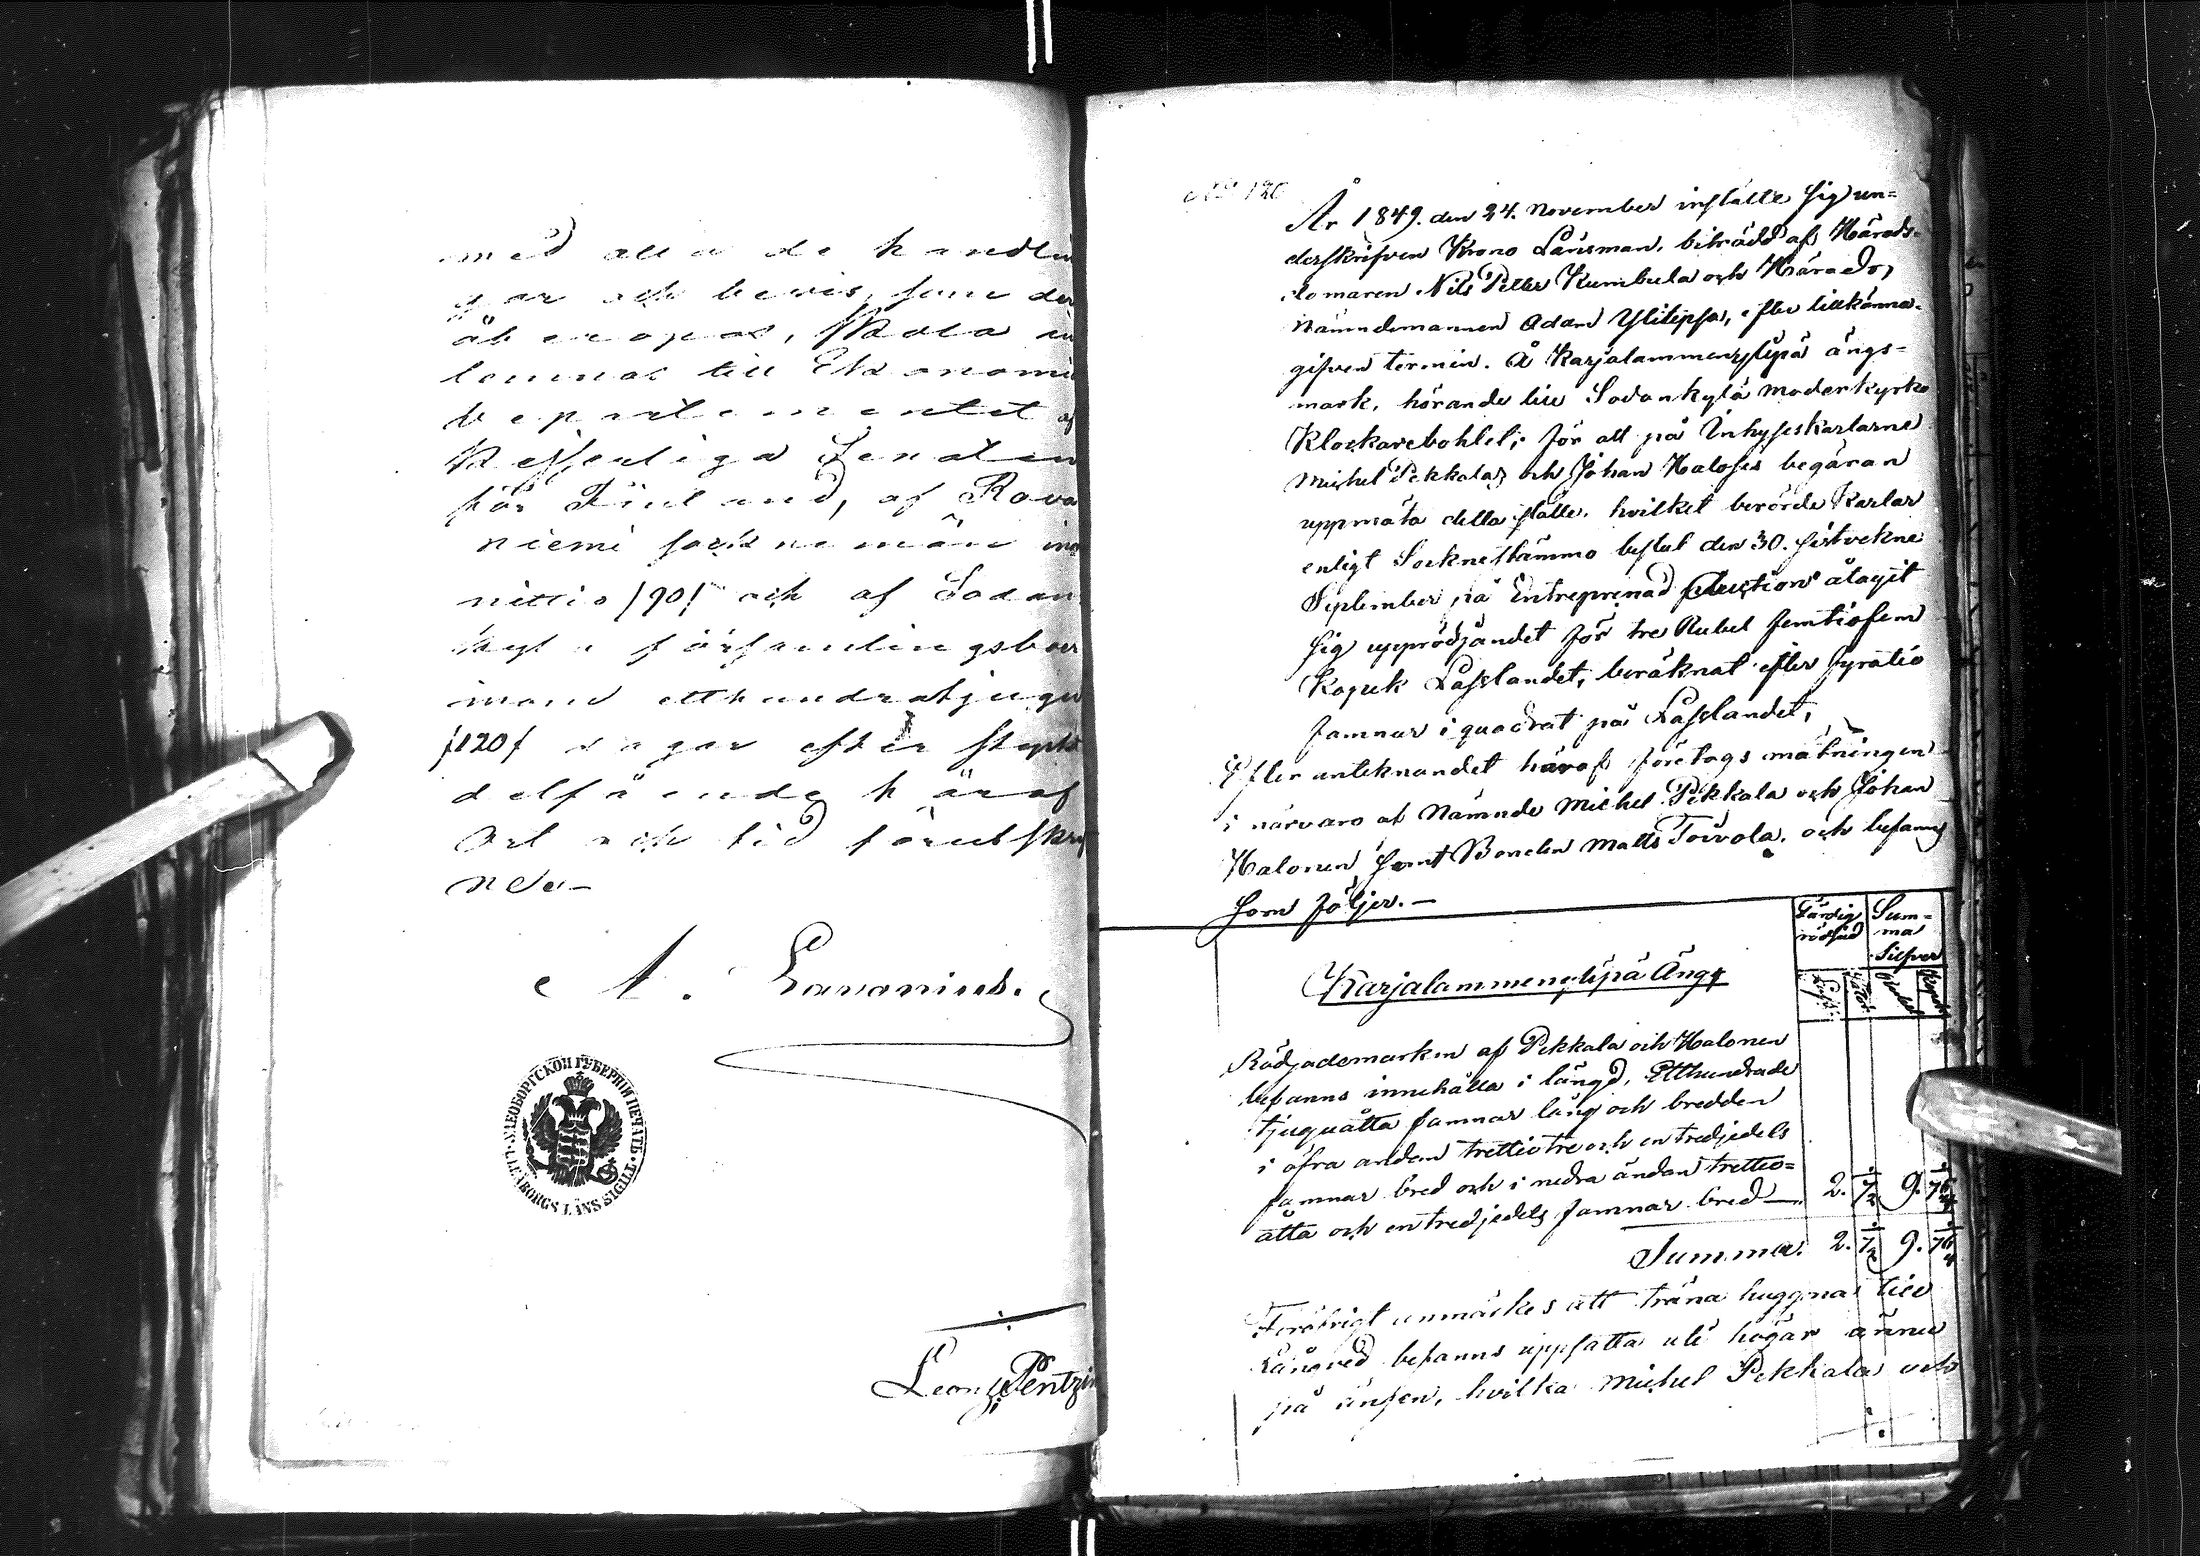 med alla de handlin
gar och bevis, som der
åberopas, skola in
lemnas till Ekonomie
departementet af
Kejserliga Senaten
för Finland, af Rova
niemi socknemän ino
nittio /90/ och af Sodan
kylä församlingsboer
inom etthundratjugu
/120/ dagar efter skedd
delfående häraf
Ort och tid förutskrif
ne
A. Lavonius.
УЛЕОБОРГСКОЙ ГУБЕРНІИ ПЕЧАТЬ · ULEÅBORGS LÄNS SIGILL
Pentzin
No 120
År 1849. den 24. November instälte sig un=
derskrifven Krono Länsman, biträdd af Härads=
domaren Nils Petter Kumbula och Härads,
Nämndemannen Adam Ylitepsa, efter tillkänna-
gifven termin. Å Karjalammenylipä ängs=
mark, hörande till Sodankylä moderkyrko
Klockarebohlet; för att på Inhyseskarlarne
Michel Pekkalas och Johan Halosis begäran
uppmäta detta ställe. hvilket berörde Karlar
enligt Socknestämmo beslut den 30. sistvekne
September på Entreprenad Auction åtagit
sig upprödjandet för tre Rubel femtiofem
Kopek Lasslandet, beräknat efter fyratio
famnar i quadrat på Lasslandet,
Efter anteknandet häraf företogs mätningen
i närvaro af Nämnde Michel Pekkala och Johan
Halonen, samt Bonden Matts Toivola. och befanns
som följer.—
Färdig
rödjad
Sum=
ma
Silfver
Rubel
Kopek
Karjalammenylipä Äng
Rödjademarken af Pekkala och Halonen
befanns innehålla i längd, Etthundrade
tjuguåtta famnar lång och bredden
i öfra andan trettiotre och en tredjedels
famnar bred och i nedra ändan trettio=
åtta och en tredjedels famnar bred — 2. 9.
Summa. 2. 9.
Föröfrigt anmärkes att träna huggna till
befanns uppsatta uti högar ännu
på ängen, hvilka Michel Pekkala och